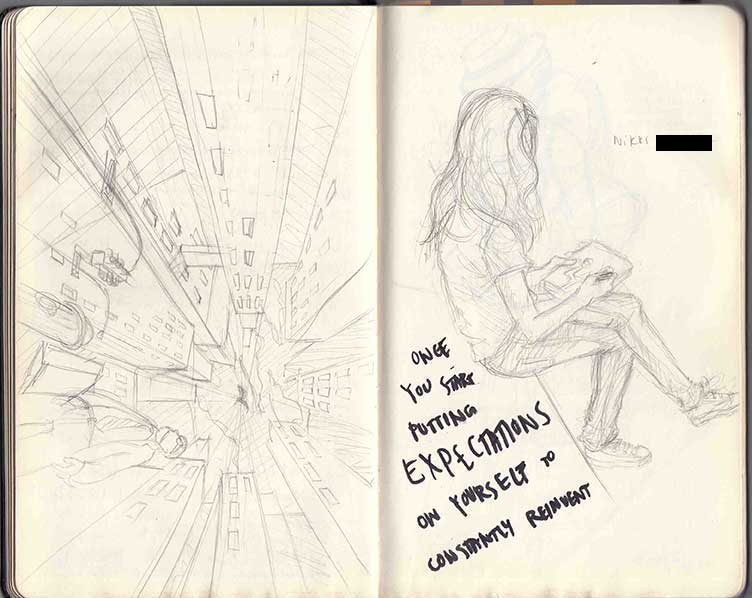 Nikki
ONCE
YOU START
PUTTING
EXPECTATIONS
ON YOURSELF TO
CONSTANTLY REINVENT